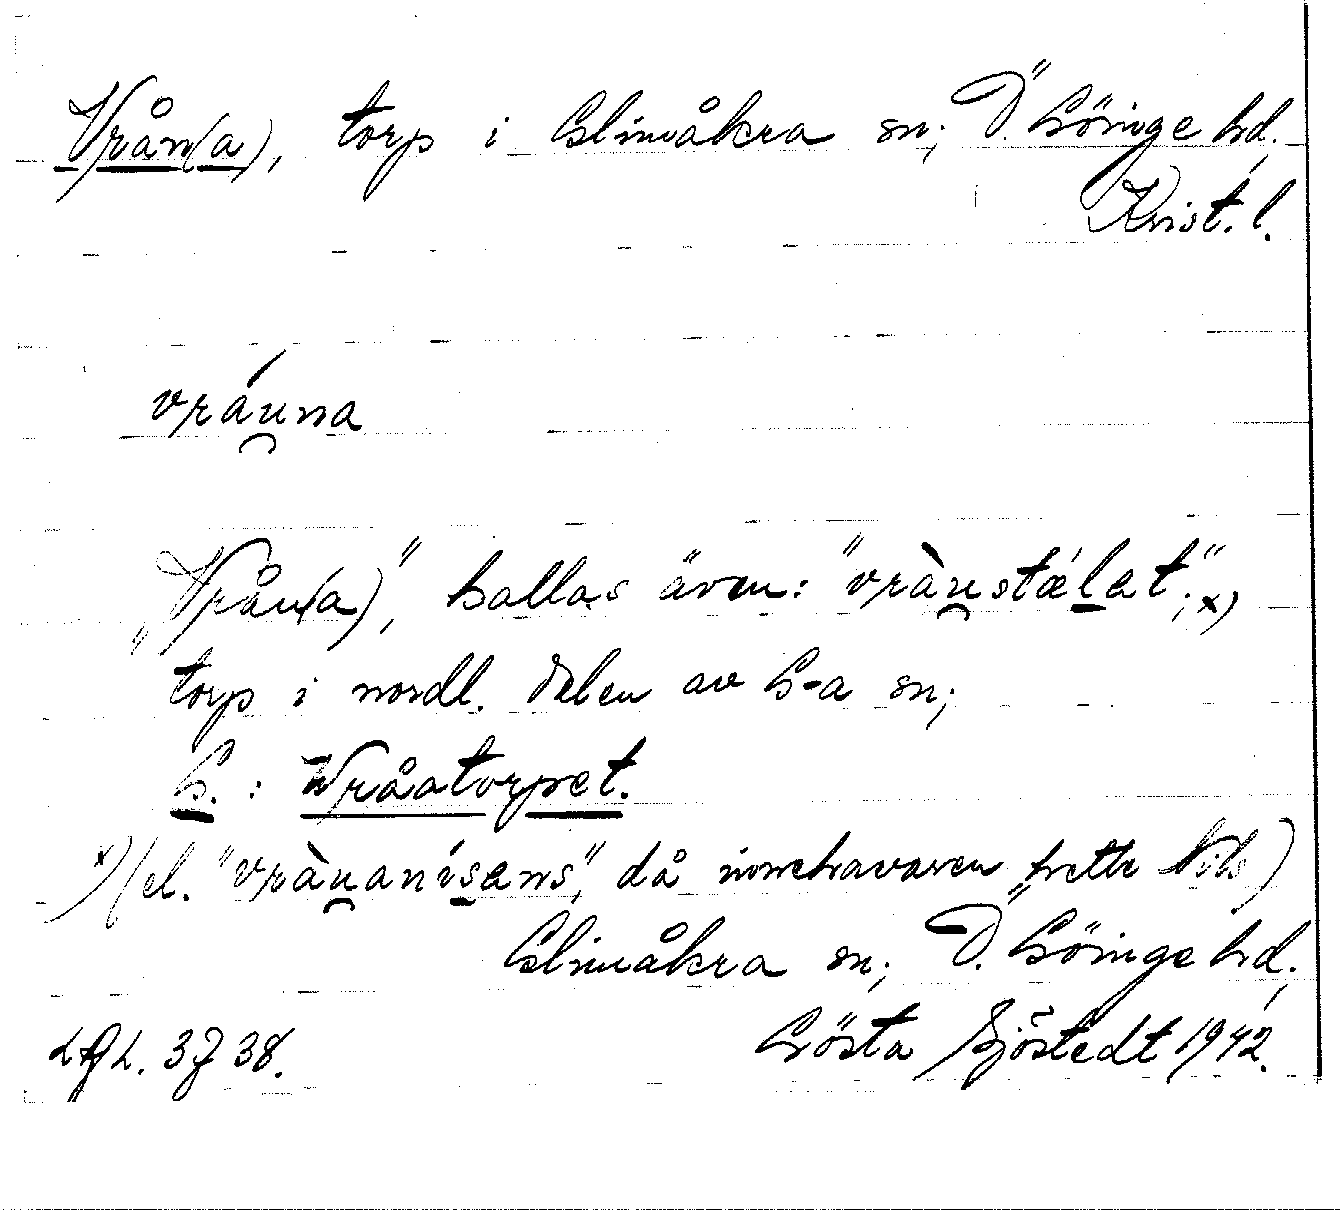 Vrån(a), torp i Glimåkra sn; Ö. Göinge hd,
Krist. l.
vráu̯na
"Vrån(a)", kallas även: "vràu̯nstælat"; x)
torp i nordl. delen av G-a sn;
G.: Wråatorpet.
x) (el. "vràu̯anísans", då innehavaren hette Nils)
Glimåkra sn; Ö. Göinge hd;
LAL. 3738. Gösta Sjöstedt 1942.